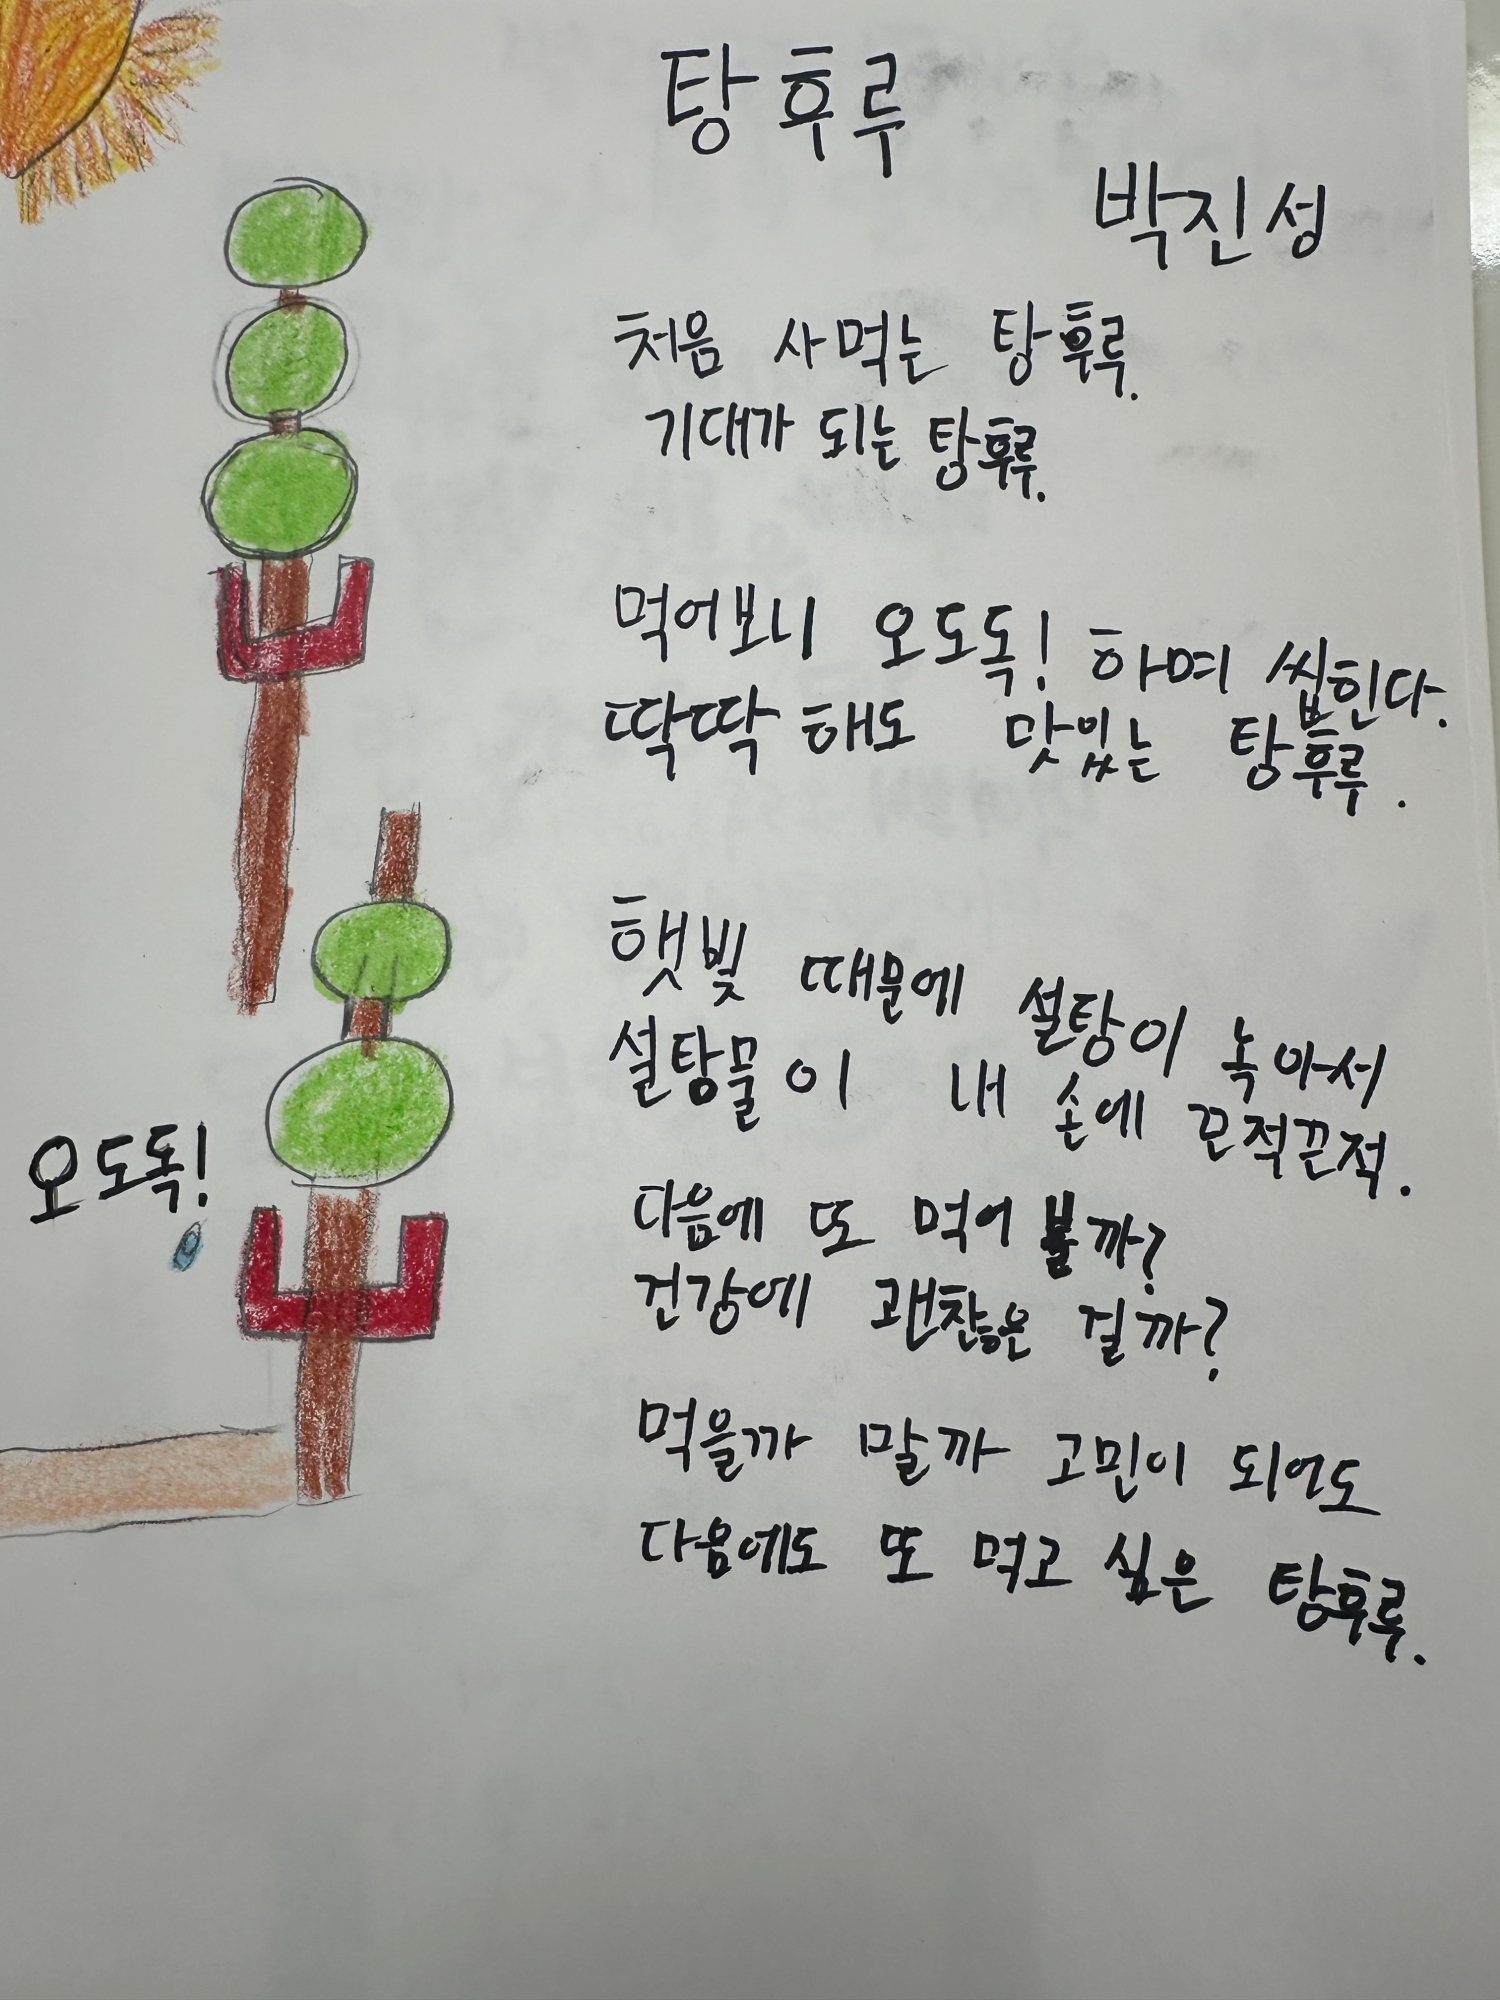 탕후루
박진성
처음 사먹는 탕후루.
기대가 되는 탕후루.
먹어보니 오도독! 하며 씹힌다.
딱딱해도 맛있는 탕후루.
햇빛 때문에 설탕이 녹아서
설탕물이 내 손에 끈적끈적.
오도독!
다음에 또 먹어 볼까?
건강에 괜찮은 걸까?
먹을까 말까 고민이 되어도
다음에도 또 먹고 싶은 탕후루.